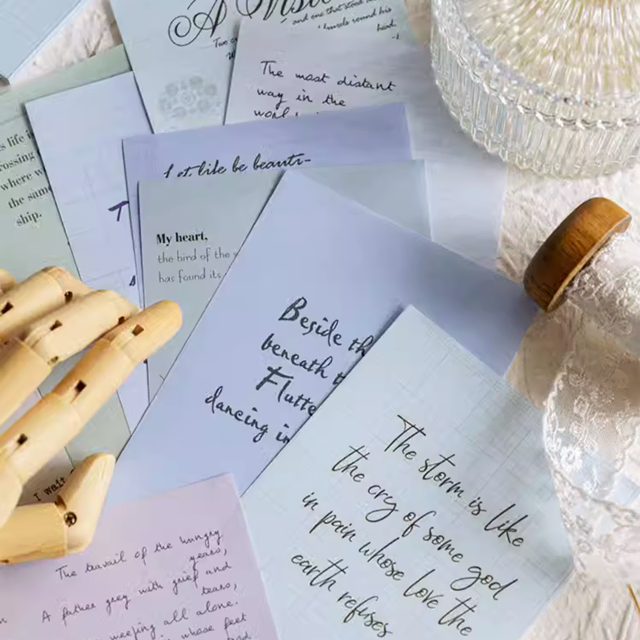 A Visit
and one that stood
hound his
The most distant
way in the
Let life be beauti-
s life
where w
the same
ship.
My heart,
the bird of the
has found its
Beside th
beneath
Flutte
dancing in
The storm is like
the cry of some god
in pain whose love the
earth refuses
I wait
The travail of the hungry
years,
A father grey with grief and
tears,
weeping all alone.
whose feet